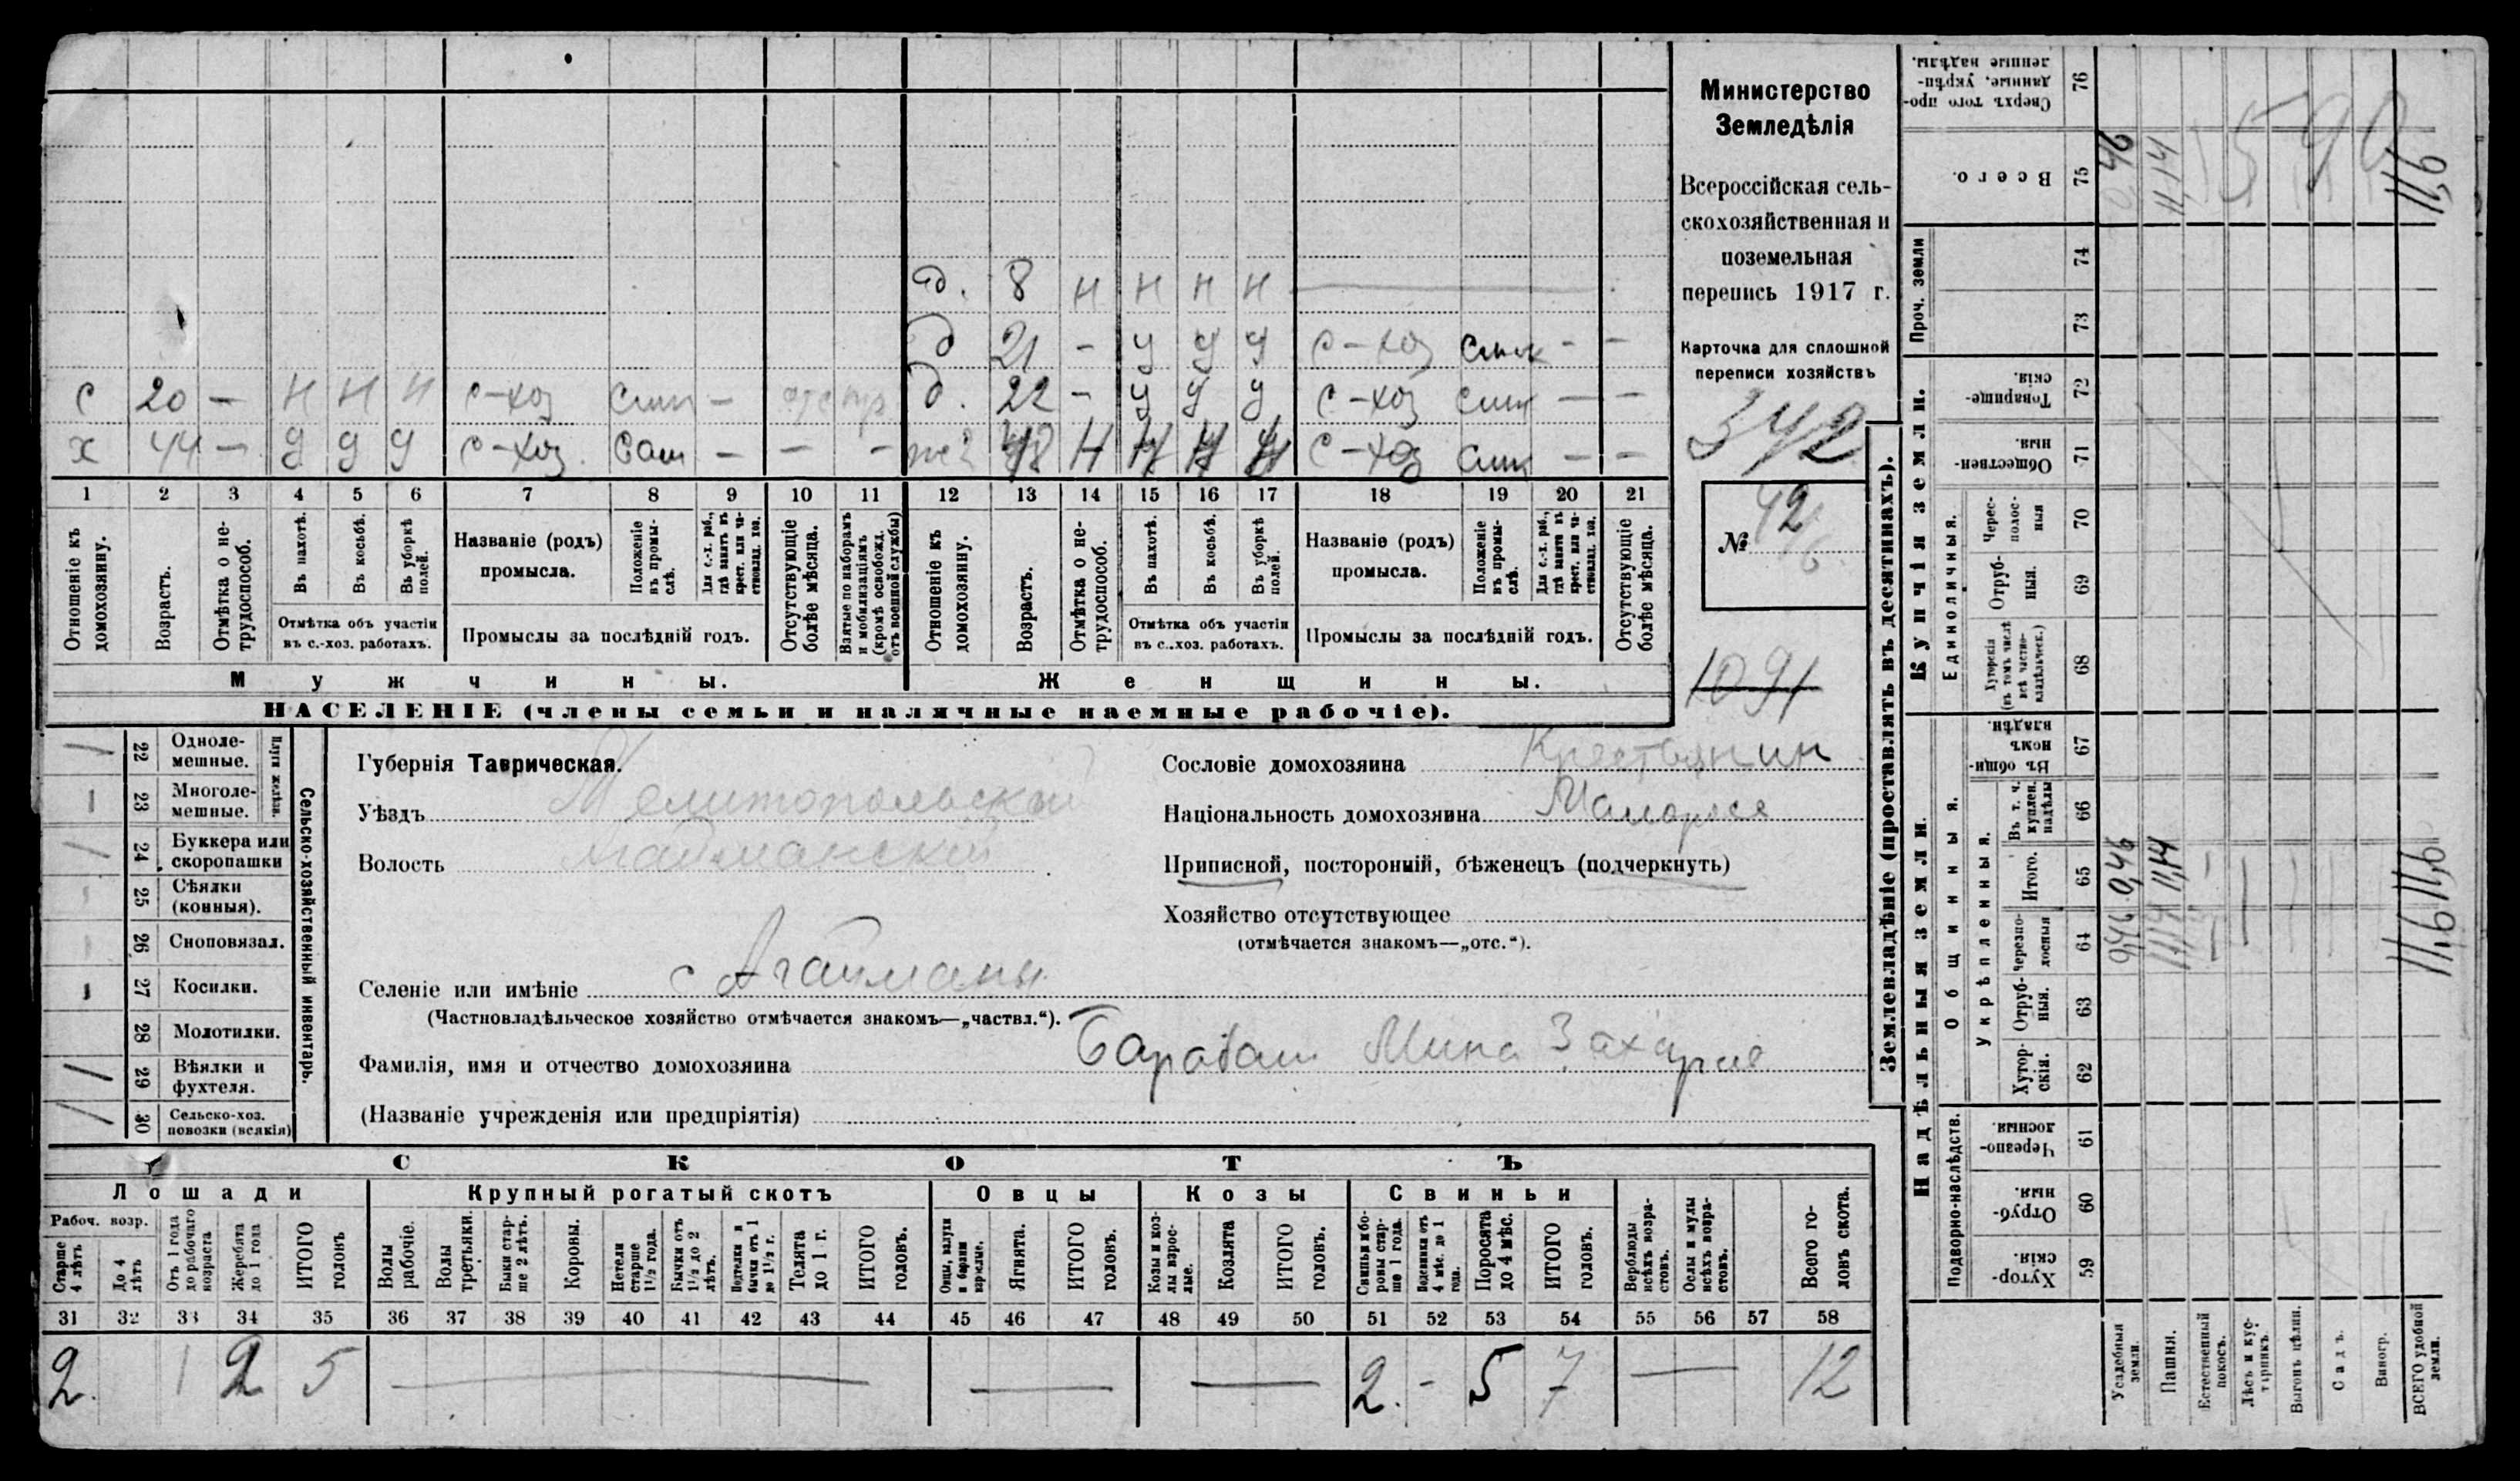 Министерство
Земледѣлія
Всероссійская сель-
скохозяйственная и
поземельная
перепись 1917 г.
Карточка для сплошной
переписи хозяйствъ
342
№ 42
1091
д. 8 н н н н
д 21 - у у у с-хоз -  -
с 20 — н н н с-хоз - д. 22 - у у у с-хоз — —
х 44 — у у у с-хоз. Сам — — - 48 Н с-хоз — —
1 2 3 4 5 6 7 8 9 10 11 12 13 14 15 16 17 18 19 20 21
Отношеніе къ домохозяину.
Возрастъ.
Отмѣтка о не-трудоспособ.
Въ пахотѣ.
Въ косьбѣ.
Въ уборкѣ полей.
Отмѣтка объ участіи
въ с.-хоз. работахъ.
Названіе (родъ)
промысла.
Положеніе въ промы-слѣ.
Для с.-х. раб., гдѣ занятъ въ крест. или ча-стновлад. хоз.
Промыслы за послѣдній годъ.
Отсутствующіе болѣе мѣсяца.
Взятые по наборамъ и мобилизаціямъ (кромѣ освобожд. отъ военной службы)
Отношеніе къ домохозяину.
Возрастъ.
Отмѣтка о не-трудоспособ.
Въ пахотѣ.
Въ косьбѣ.
Въ уборкѣ полей.
Отмѣтка объ участіи
въ с.-хоз. работахъ.
Названіе (родъ)
промысла.
Положеніе въ промы-слѣ.
Для с.-х. раб., гдѣ занята въ крест. или ча-стновлад. хоз.
Промыслы за послѣдній годъ.
Отсутствующіе болѣе мѣсяца.
Мужчины.
Женщины.
НАСЕЛЕНІЕ (члены семьи и наличные наемные рабочіе).
Сельско-хозяйственный инвентарь.
Плуги желѣзн.
22 Одноле-мешные.
23 Многоле-мешные.
24 Буккера или скоропашки
25 Сѣялки (конныя).
26 Сноповязал.
27 Косилки.
28 Молотилки.
29 Вѣялки и фухтеля.
30 Сельско-хоз. повозки (всякія)
Губернія Таврическая.
Уѣздъ Мелитопольскій
Волость Агайманскій
Селеніе или имѣніе с Агайманы
(Частновладѣльческое хозяйство отмѣчается знакомъ—„частвл.“).
Фамилія, имя и отчество домохозяина Барабаш Мина Захаров
(Названіе учрежденія или предпріятія)
Сословіе домохозяина Крестьянин
Національность домохозяина Малоросс
Приписной, посторонній, бѣженецъ (подчеркнуть)
Хозяйство отсутствующее
(отмѣчается знакомъ—„отс.“).
СКОТЪ
Лошади
Рабоч. возр.
Старше 4 лѣтъ
До 4 лѣтъ
Отъ 1 года до рабочаго возраста
Жеребята до 1 года
ИТОГО головъ
Крупный рогатый скотъ
Волы рабочіе.
Волы третьяки.
Быки стар-ше 2 лѣтъ.
Коровы.
Нетели старше 1½ года.
Бычки отъ 1½ до 2 лѣтъ.
Подтелки и бычки отъ 1 до 1½ г.
Телята до 1 г.
ИТОГО головъ.
Овцы
Овцы, валухи и бараны взрослые.
Ягнята.
ИТОГО головъ.
Козы
Козы и коз-лы взрос-лые.
Козлята
ИТОГО головъ.
Свиньи
Свиньи и бо-ровы стар-ше 1 года.
Подсвинки отъ 4 мѣс. до 1 года.
Поросята до 4 мѣс.
ИТОГО головъ.
Верблюды всѣхъ возра-стовъ.
Ослы и мулы всѣхъ возра-стовъ.
Всего го-ловъ скота.
31 32 33 34 35 36 37 38 39 40 41 42 43 44 45 46 47 48 49 50 51 52 53 54 55 56 57 58
2. 1 2 5 — — — 2. - 5 7 — 12
Землевладѣніе (проставлять въ десятинахъ).
Сверхъ того про-данные, укрѣп-ленные надѣлы. 76
Всего. 75
Проч. земли 74 73
Купчія земли.
Товарище-скія. 72
Обществен-ныя. 71
Единоличныя.
Черес-полос-ныя 70
Отруб-ныя. 69
Хуторскія (въ томъ числѣ всѣ частно-владѣльческ.) 68
Надѣльныя земли.
Общинныя.
Въ общин-номъ владѣн. 67
Укрѣпленныя.
Въ т. ч. куплен. надѣлы 66
Итого. 65
Черезпо-лосныя 64
Отруб-ныя. 63
Хутор-скія. 62
Подворно-наслѣдств.
Черезпо-лосныя. 61
Отруб-ныя. 60
Хутор-скія. 59
Усадебныя земли. 0,46 0,46
Пашня. 11,14 11,14 11,14
Естественный покосъ.
Лѣсъ и кус-тарникъ.
Выгонъ цѣлин.
Садъ.
Виногр.
ВСЕГО удобной земли. 11,6 11,6 11,6
1590